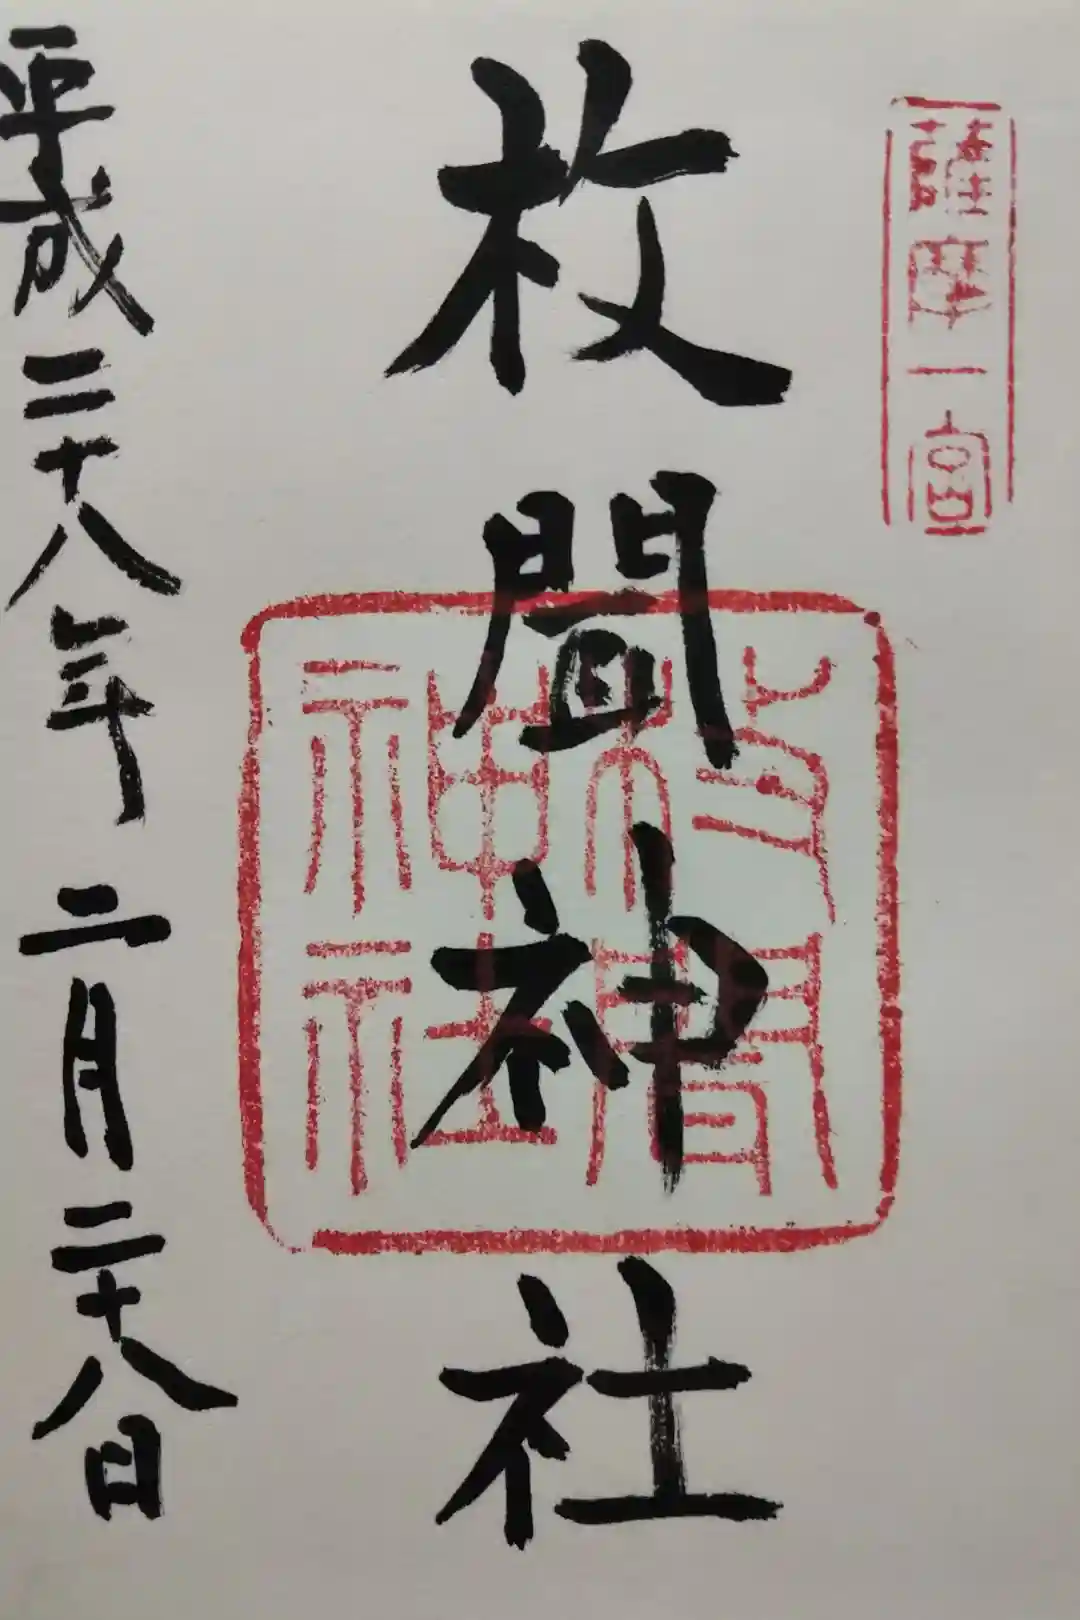 薩摩一宮
枚聞神社
枚聞神社
平成二十八年二月二十八日